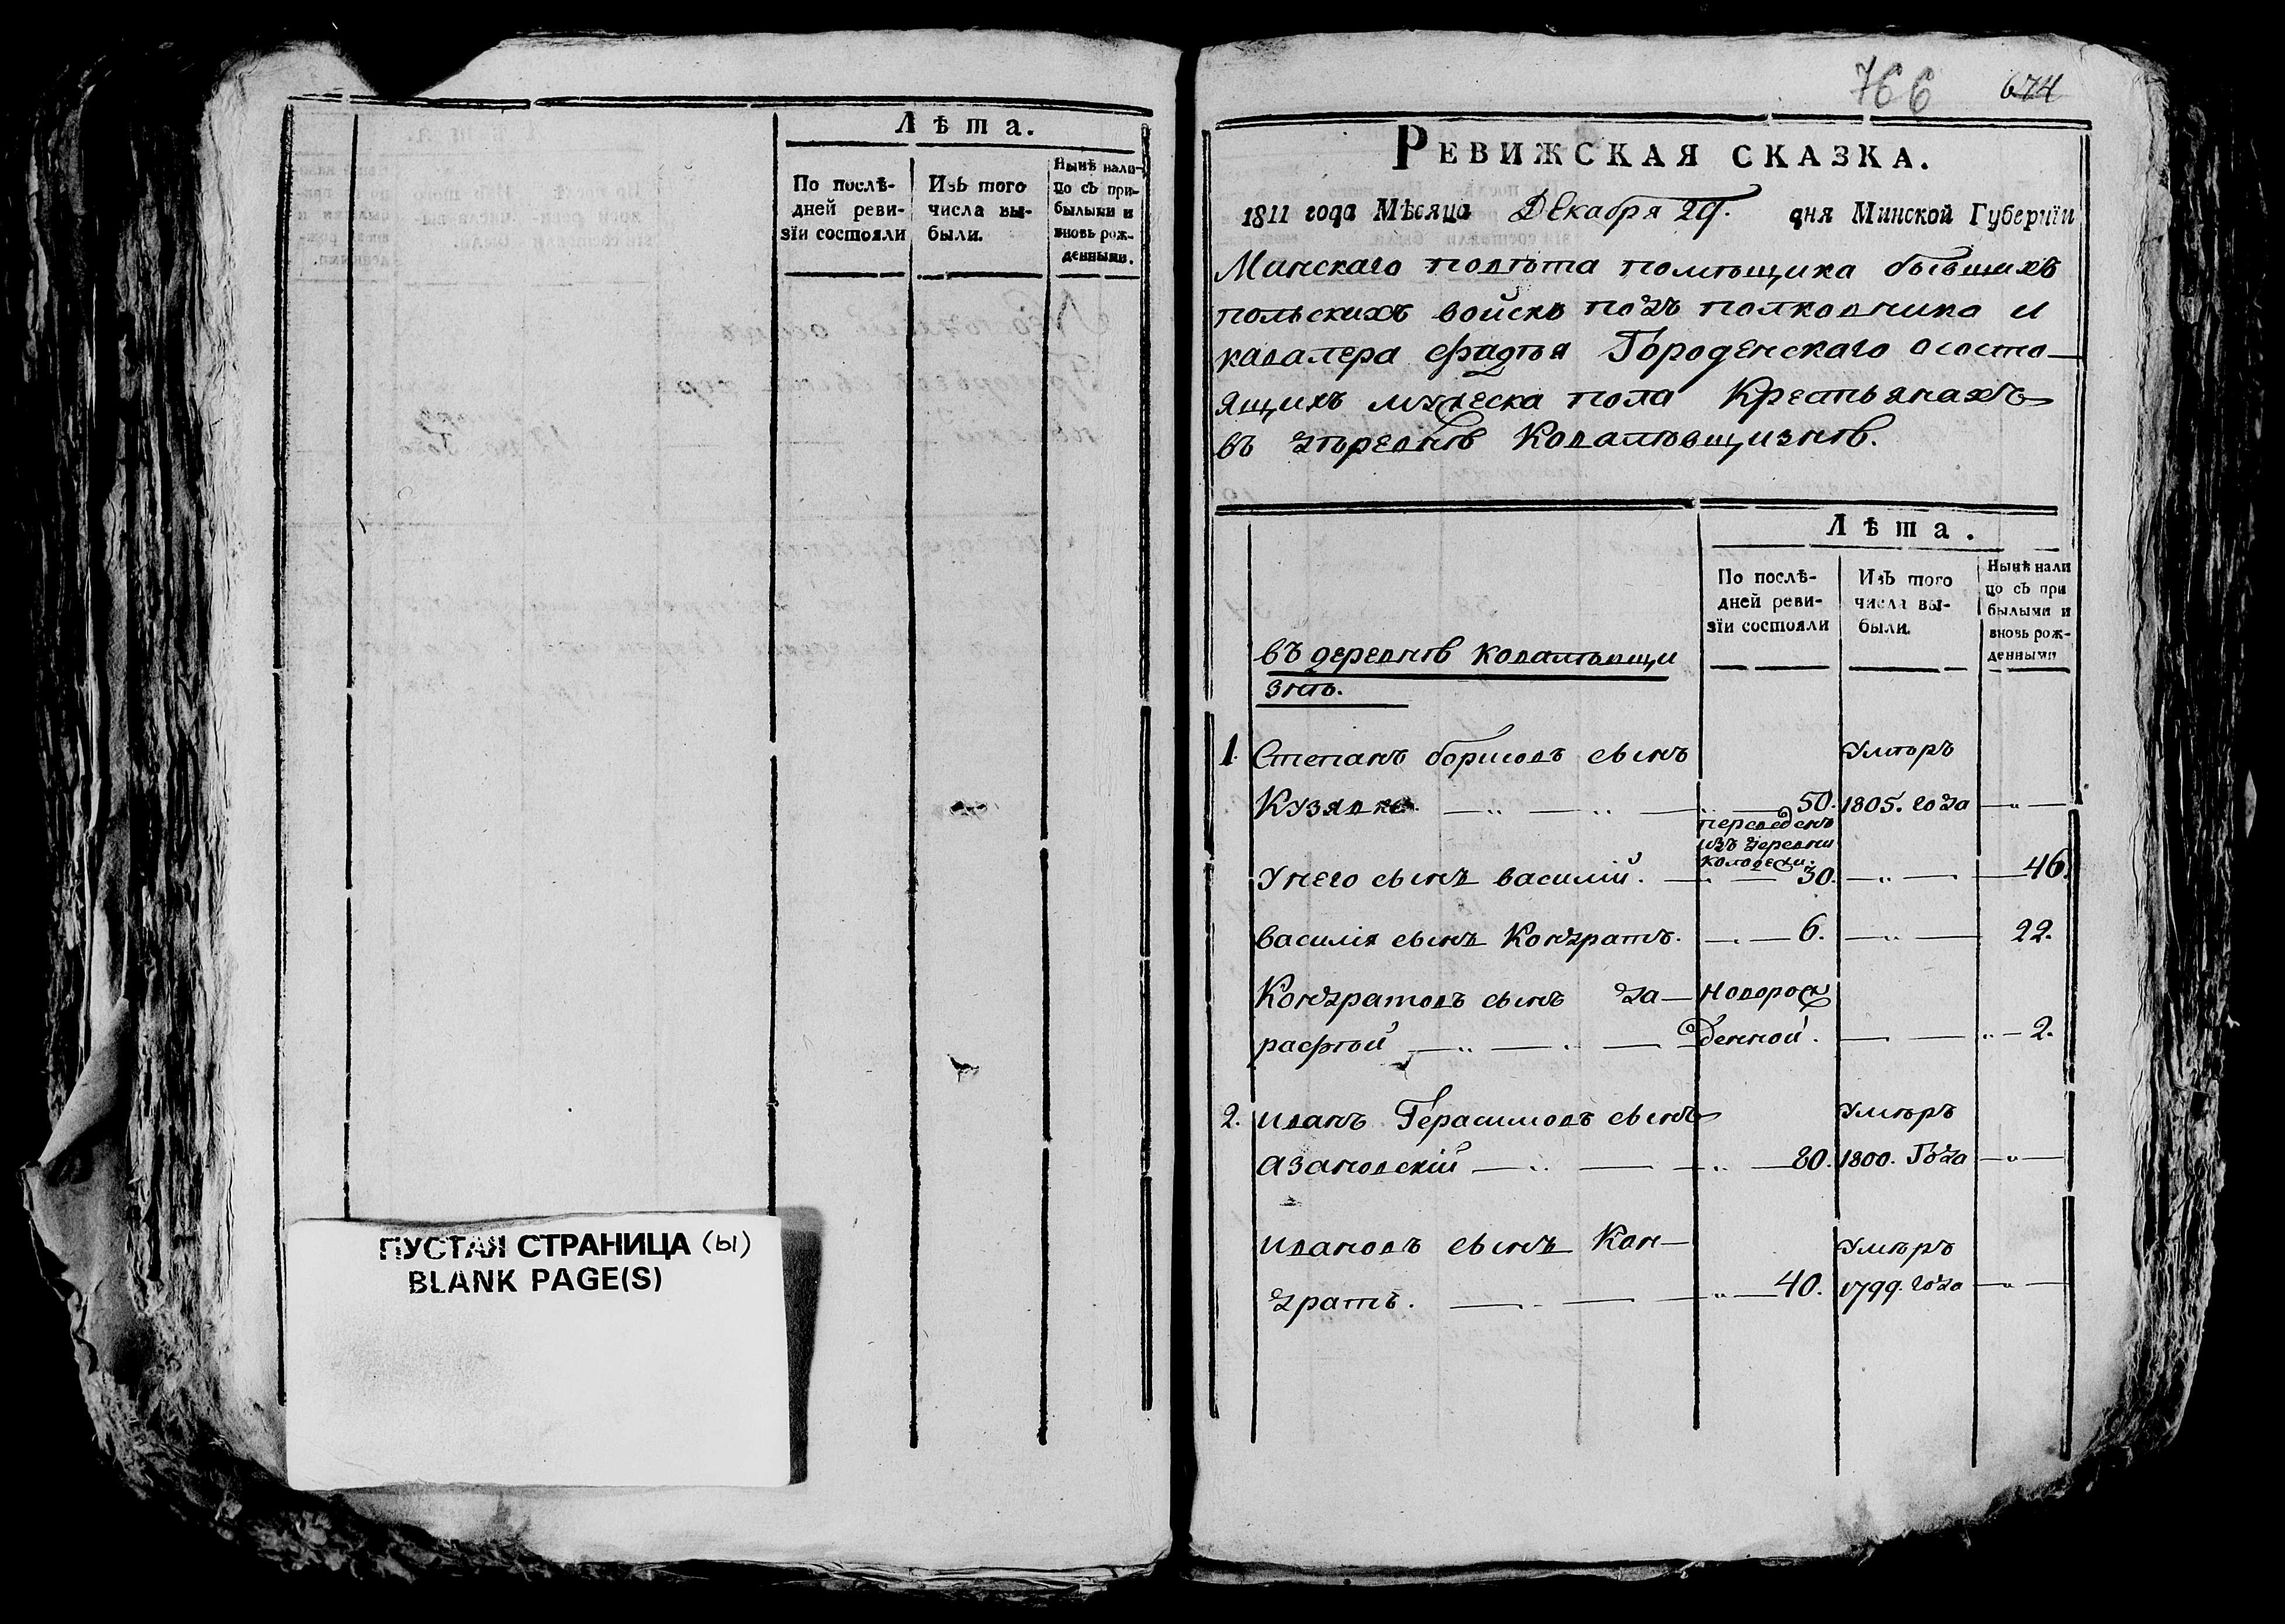 Лѣта.
По послѣ-
дней реви-
зїи состояли
Изъ того
числа вы-
были.
Нынѣ нали-
цо съ при-
былыми и
вновь рож-
денными.
ПУСТАЯ СТРАНИЦА (ы)
BLANK PAGE(S)
766 674
РЕВИЖСКАЯ СКАЗКА.
1811 года Мѣсяца Декабря 29. дня Минской Губернїи
Минскаго повѣта помѣщика бывшихъ
польскихъ войскъ подъ полковника и
кавалера Фадѣя Городенскаго ососто—
ящихъ мужеска пола Крестьянахъ
въ дѣревнѣ Ковалѣвщизнѣ.
Лѣта.
По послѣ-
дней реви-
зїи состояли
Изъ того
числа вы-
были.
Нынѣ нали
цо съ при
былыми и
вновь рож-
денными
въ деревнѣ Ковалѣвщи
знѣ.
1. Степанъ борисовъ сынъ умѣръ
Кузявко. — „ — „ — 50. 1805. года — „ —
переведенъ
изъ деревни
колодези.
У него сынъ василій. — 30. — „ — 46.
василія сынъ Кондратъ. — „ — 6. — „ — 22.
Кондратовъ сынъ Да— новорож
рафѣй — „ — „ — денной. — — „ — 2.
2. иванъ Герасимовъ сынъ умѣръ
азановскій — „ — „ — 80. 1800. Года — „ —
ивановъ сынъ Кон— умѣръ
дратъ. — „ — „ — 40. 1799. года — „ —